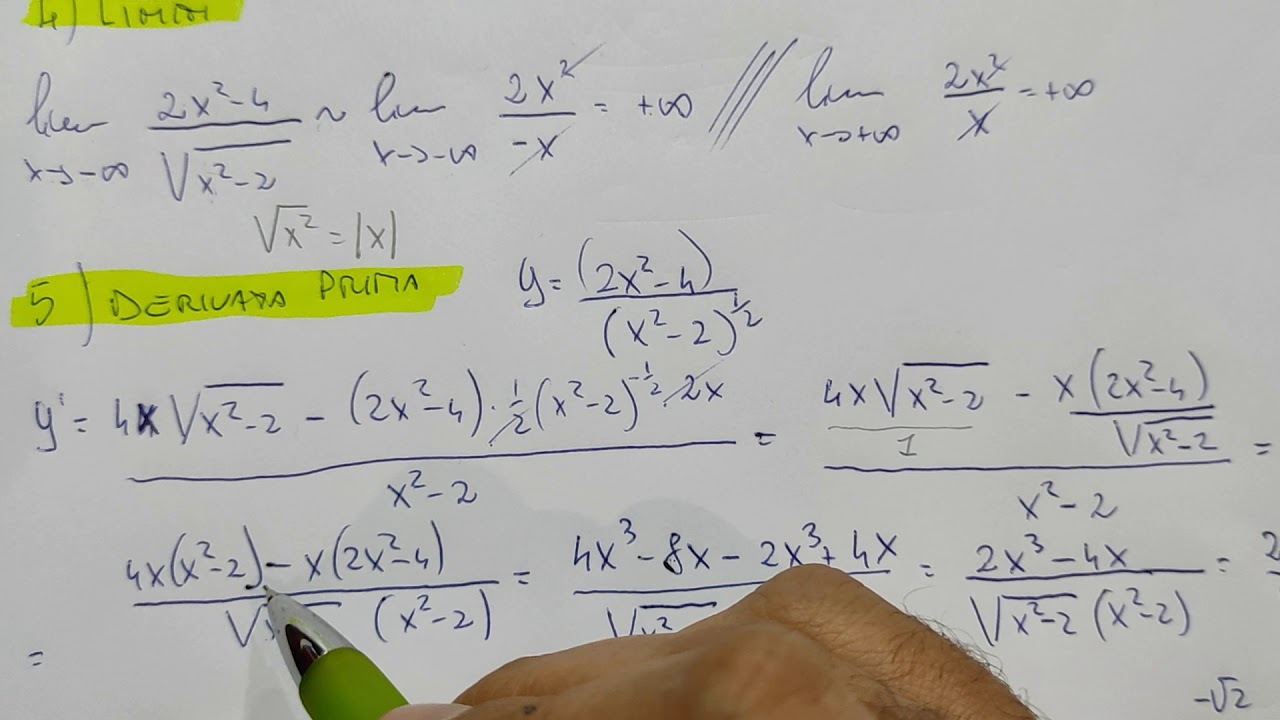 4) LIMITI
lim x→-∞ (2x²-4)/√(x²-2) ~ lim x→-∞ 2x²/-x = +∞ /// lim x→+∞ 2x²/x = +∞
√x² = |x|
5) DERIVATA PRIMA y = (2x²-4)/(x²-2)^½
y' = (4x√(x²-2) - (2x²-4)·½(x²-2)^-½·2x)/(x²-2) = (4x√(x²-2)/1 - x(2x²-4)/√(x²-2))/(x²-2) =
= (4x(x²-2) - x(2x²-4))/(√x (x²-2)) = (4x³-8x-2x³+4x)/√x² = (2x³-4x)/(√(x²-2) (x²-2)) = 2
-√2